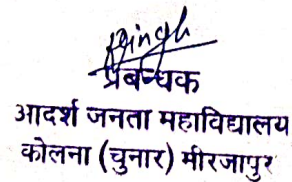 Singh
प्रबन्धक
आदर्श जनता महाविद्यालय
कोलना (चुनार) मीरजापुर